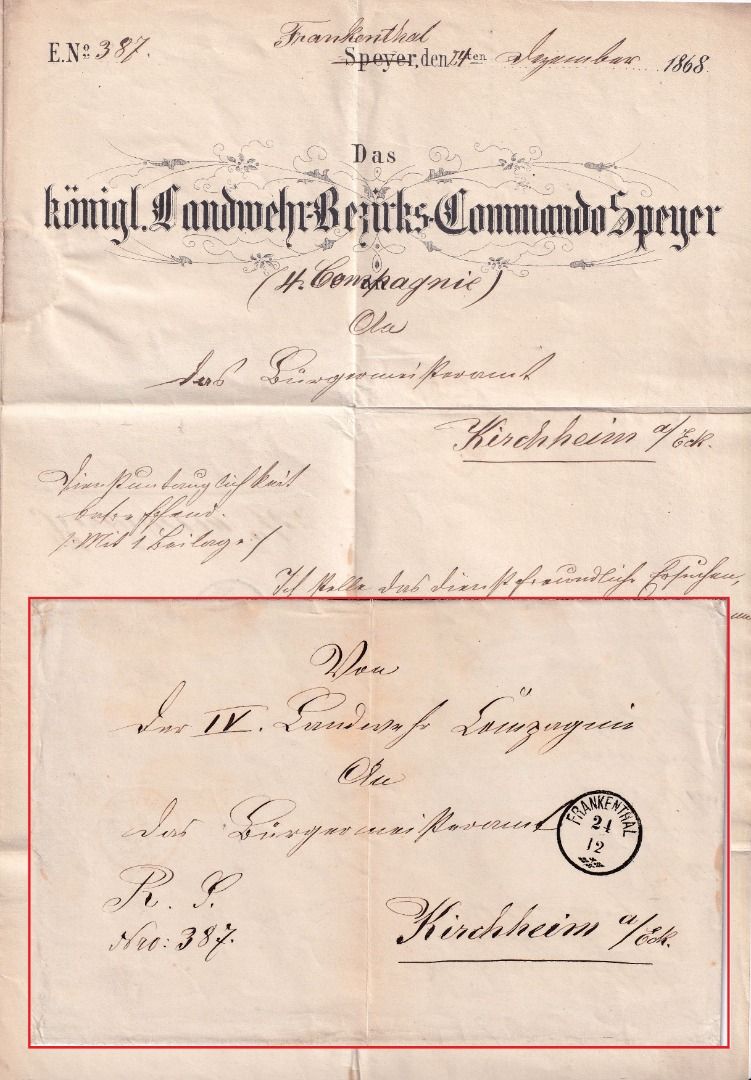 E.Nº 387.
Frankenthal
Speyer, den 24ten Dezember 1868.
Das
königl. Landwehr-Bezirks-Commando Speyer
(4. Compagnie)
An
das Bürgermeisteramt
Kirchheim a/Eck.
Dienstuntauglichkeit
betreffend.
/: Mit 1 Beilage :/
Ich stelle das dienstfreundliche Ersuchen,
Von
der IV. Landwehr Compagnie
An
das Bürgermeisteramt
FRANKENTHAL
24
12
R. S.
Nro: 387.
Kirchheim a/Eck.